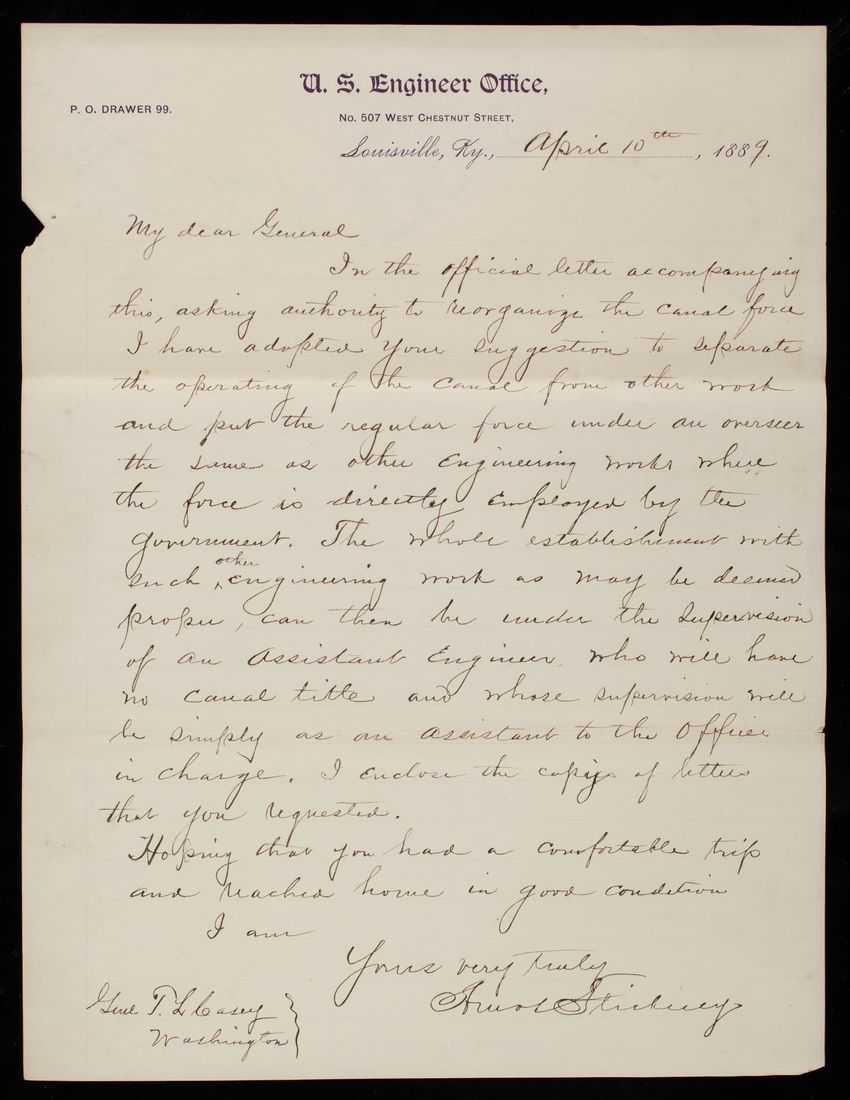 U. S. Engineer Office,
P. O. DRAWER 99.
No. 507 WEST CHESTNUT STREET,
Louisville, Ky., April 10th, 1889.
My dear General
In the official letter accompanying
this, asking authority to reorganize the canal force
I have adopted your suggestion to separate
the operating of the canal from other work
and put the regular force under an overseer
the same as other Engineering works where
the force is directly employed by the
government. The whole establishment with
other
such ^ engineering work as may be deemed
proper, can then be under the supervision
of an Assistant Engineer, who will have
no canal title and whose supervision will
be simply as an assistant to the Officer
in charge. I enclose the copies of letters
that you requested.
Hoping that you had a comfortable trip
and reached home in good condition
I am
Yours very truly
Amos Stickney
Genl T. L. Casey
Washington